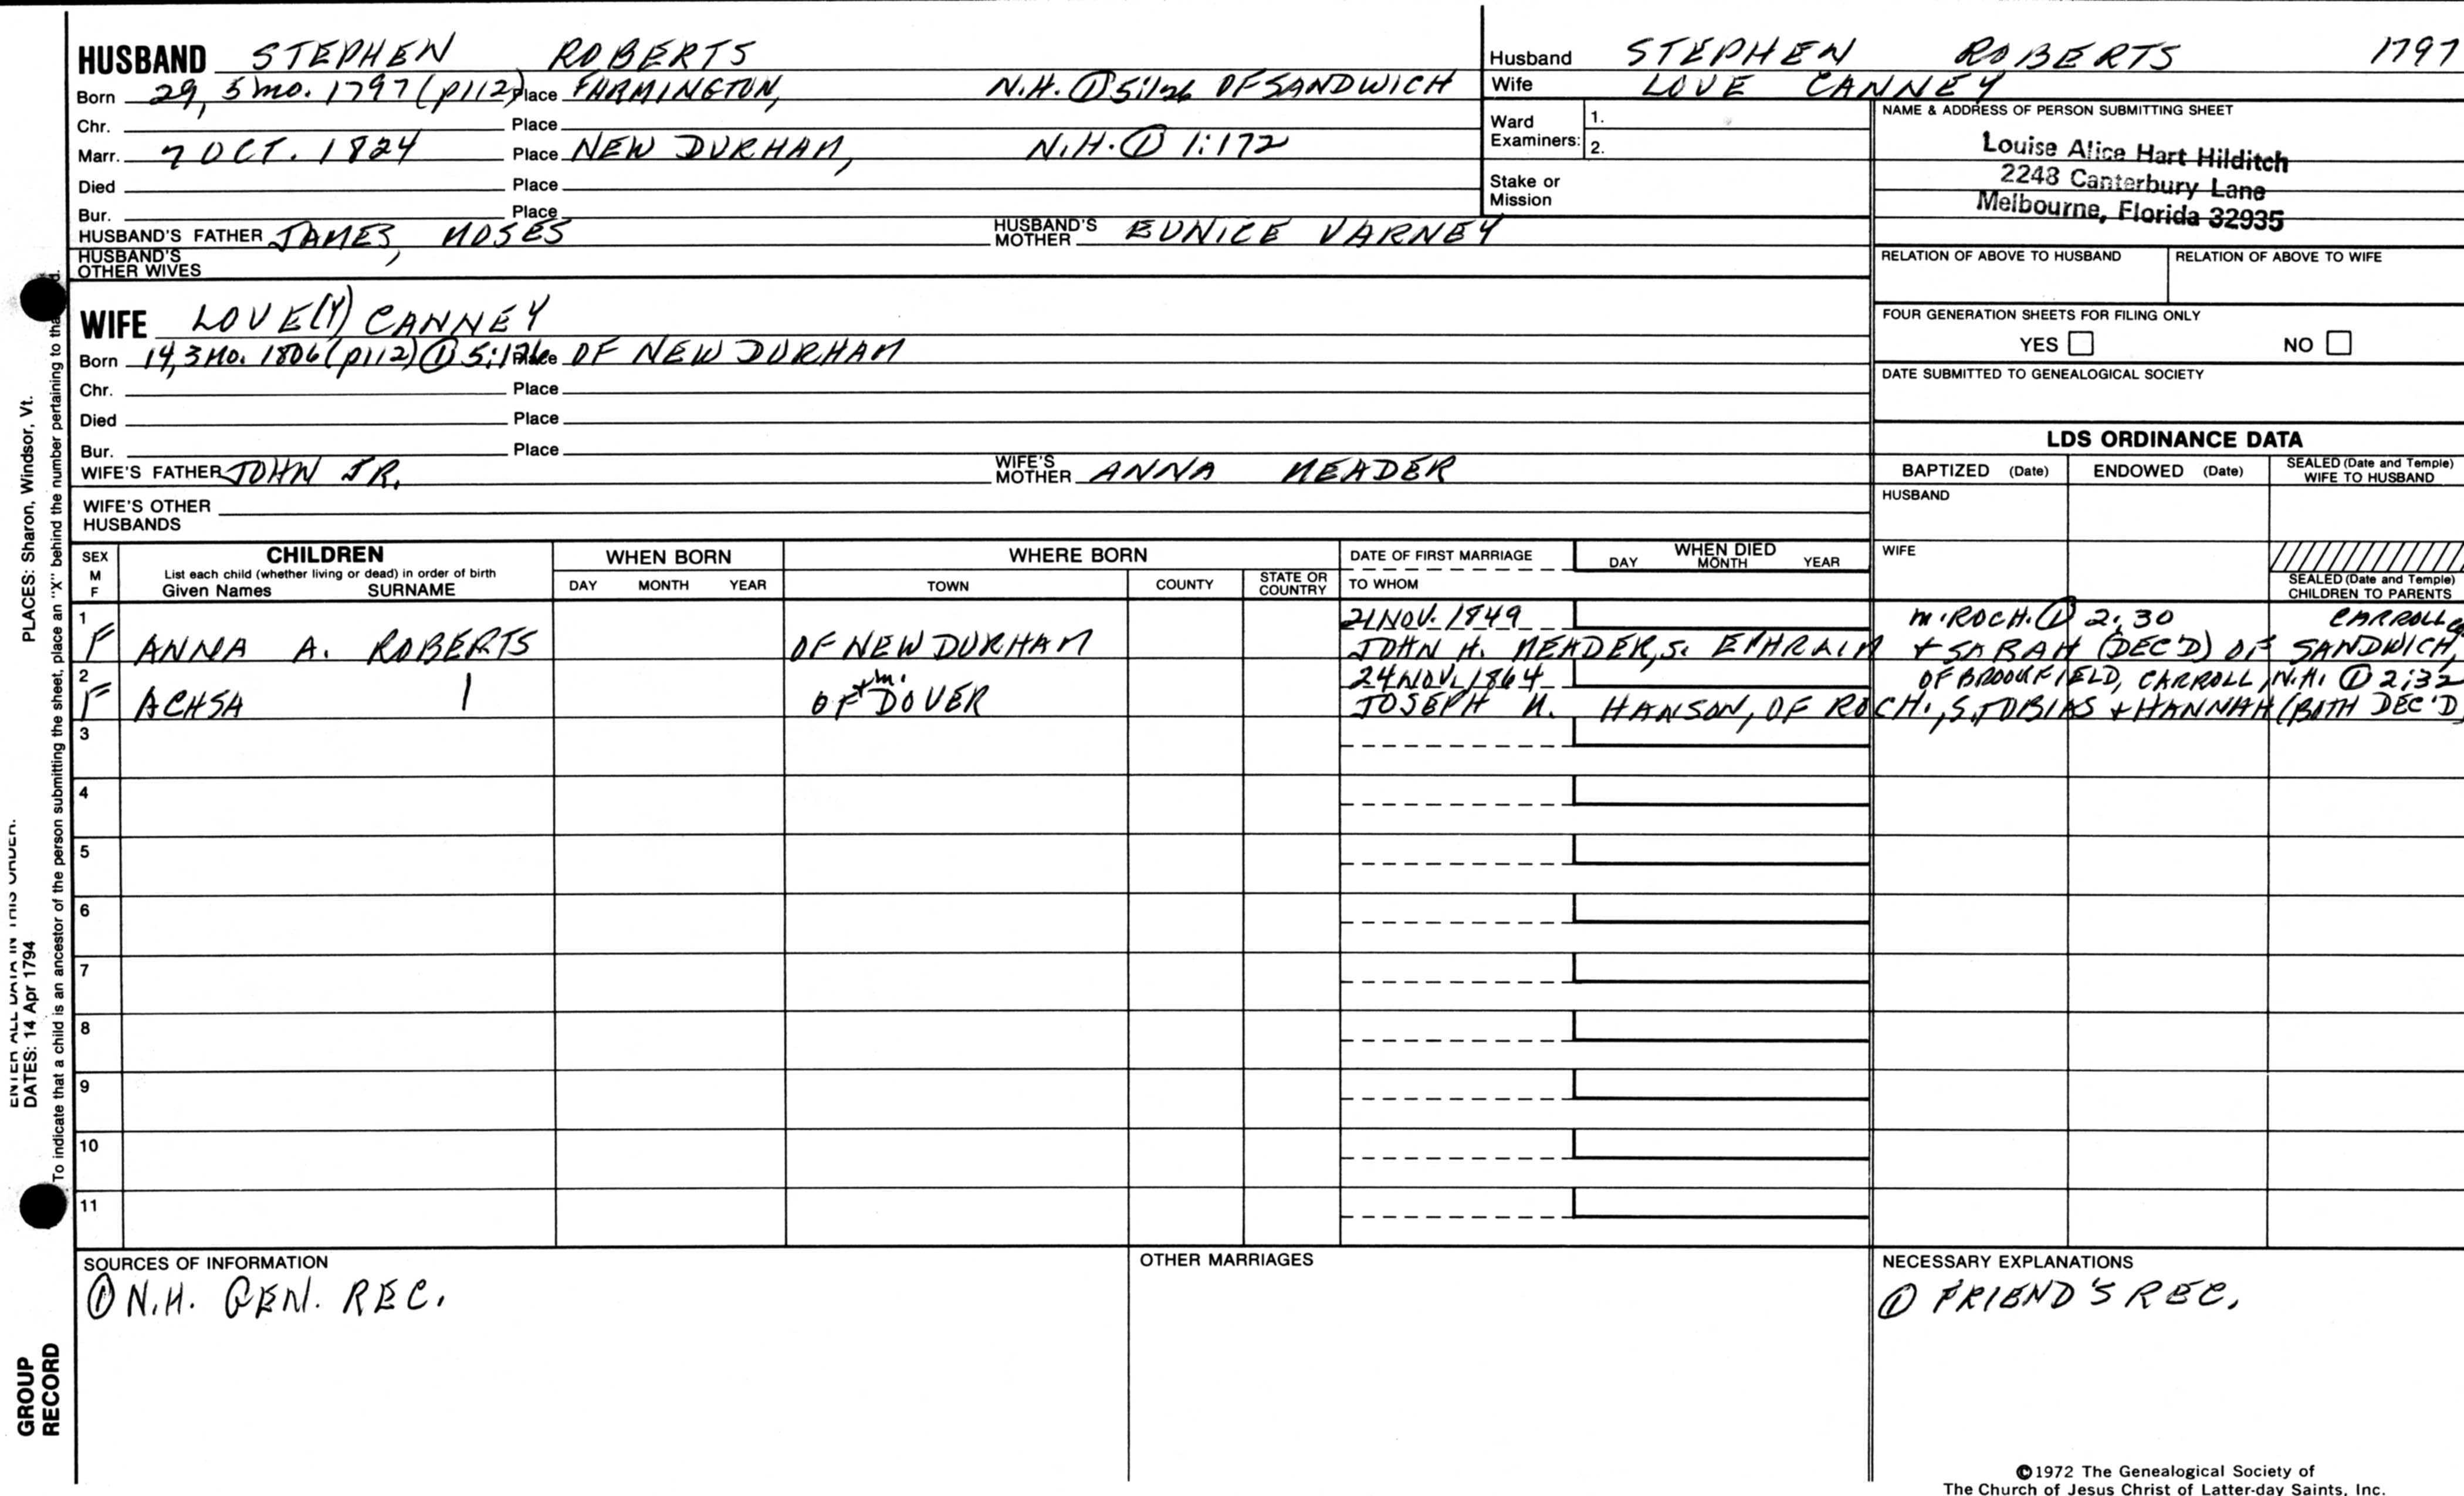 HUSBAND STEPHEN ROBERTS
Born 29, 5 mo. 1797 (p112) Place FARMINGTON, N.H. ① 5:126 OF SANDWICH
Chr. Place
Marr. 7 OCT. 1824 Place NEW DURHAM, N.H. ① 1:172
Died Place
Bur. Place
HUSBAND'S FATHER JAMES, MOSES HUSBAND'S MOTHER EUNICE VARNEY
HUSBAND'S OTHER WIVES
Husband STEPHEN ROBERTS 1797
Wife LOVE CANNEY
Ward Examiners: 1.
2.
Stake or Mission
NAME & ADDRESS OF PERSON SUBMITTING SHEET
Louise Alice Hart Hilditch
2248 Canterbury Lane
Melbourne, Florida 32935
RELATION OF ABOVE TO HUSBAND RELATION OF ABOVE TO WIFE
FOUR GENERATION SHEETS FOR FILING ONLY
YES NO
DATE SUBMITTED TO GENEALOGICAL SOCIETY
WIFE LOVE(Y) CANNEY
Born 14, 3 MO. 1806 (p112) ① 5:126 Place OF NEW DURHAM
Chr. Place
Died Place
Bur. Place
WIFE'S FATHER JOHN JR. WIFE'S MOTHER ANNA MEADER
WIFE'S OTHER HUSBANDS
LDS ORDINANCE DATA
BAPTIZED (Date) ENDOWED (Date) SEALED (Date and Temple) WIFE TO HUSBAND
HUSBAND
WIFE
SEALED (Date and Temple) CHILDREN TO PARENTS
SEX M F CHILDREN WHEN BORN WHERE BORN DATE OF FIRST MARRIAGE WHEN DIED
List each child (whether living or dead) in order of birth
Given Names SURNAME DAY MONTH YEAR TOWN COUNTY STATE OR COUNTRY TO WHOM DAY MONTH YEAR
1 21 NOV. 1849 m. ROCH. ① 2:30 CARROLL
F ANNA A. ROBERTS OF NEW DURHAM JOHN H. MEADER, S. EPHRAIM + SARAH (DEC'D) OF SANDWICH,
2 + m. 24 NOV. 1864 OF BROOKFIELD, CARROLL, N.H. ① 2:32
F ACHSA | OF DOVER JOSEPH N. HANSON, OF ROCH., S. TOBIAS + HANNAH (BOTH DEC'D)
3
4
5
6
7
8
9
10
11
SOURCES OF INFORMATION
① N.H. GEN. REC.
OTHER MARRIAGES
NECESSARY EXPLANATIONS
① FRIEND'S REC.
©1972 The Genealogical Society of
The Church of Jesus Christ of Latter-day Saints, Inc.
PLACES: Sharon, Windsor, Vt.
ENTER ALL DATA IN THIS ORDER.
DATES: 14 Apr 1794
To indicate that a child is an ancestor of the person submitting the sheet, place an "X" behind the number pertaining to
GROUP
RECORD